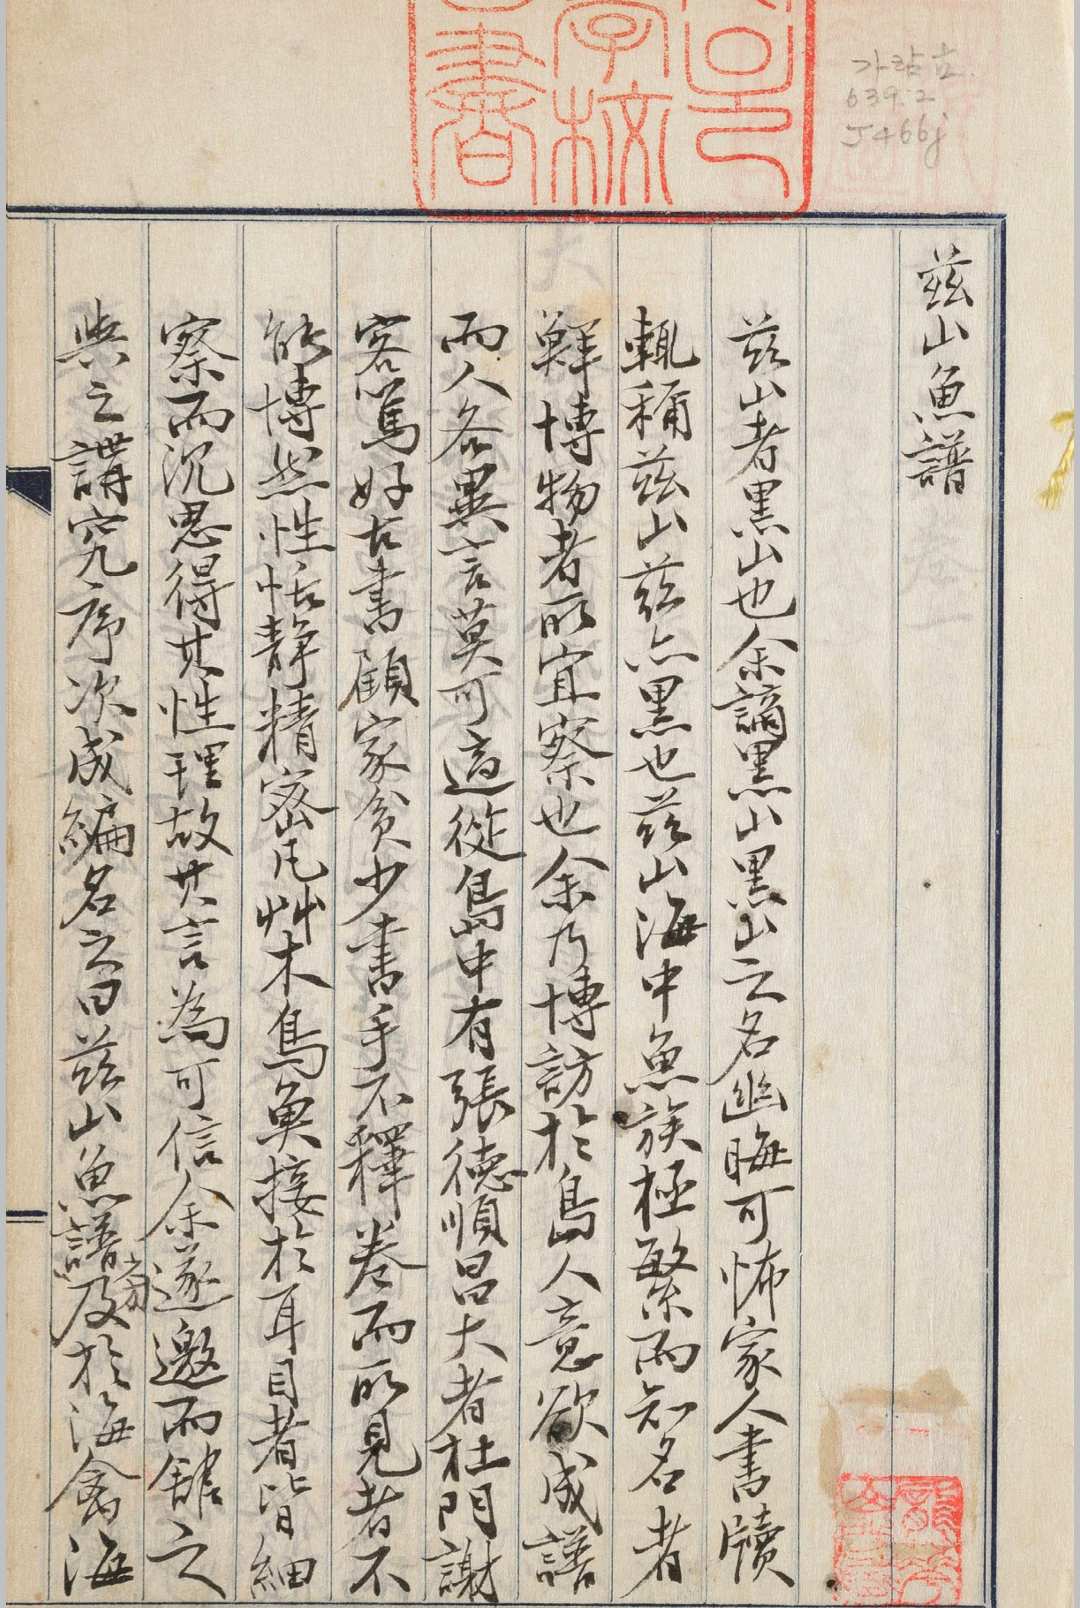 玆山魚譜
玆山者黒山也余謫黒山黒山之名幽晦可怖家人書牘
輒稱玆山玆亦黒也玆山海中魚族極繁而知名者
鮮博物者所宜察也余乃博訪於島人意欲成譜
而人各異言莫可適從島中有張德順昌大者杜門謝
客篤好古書顧家貧少書手不釋卷而所見者不
能博然性恬靜精密凡艸木鳥魚接於耳目者皆細
察而沉思得其性理故其言為可信余遂邀而舘之
與之講究序次成編名之曰玆山魚譜旁及於海禽海
가람古
639.2
J466j